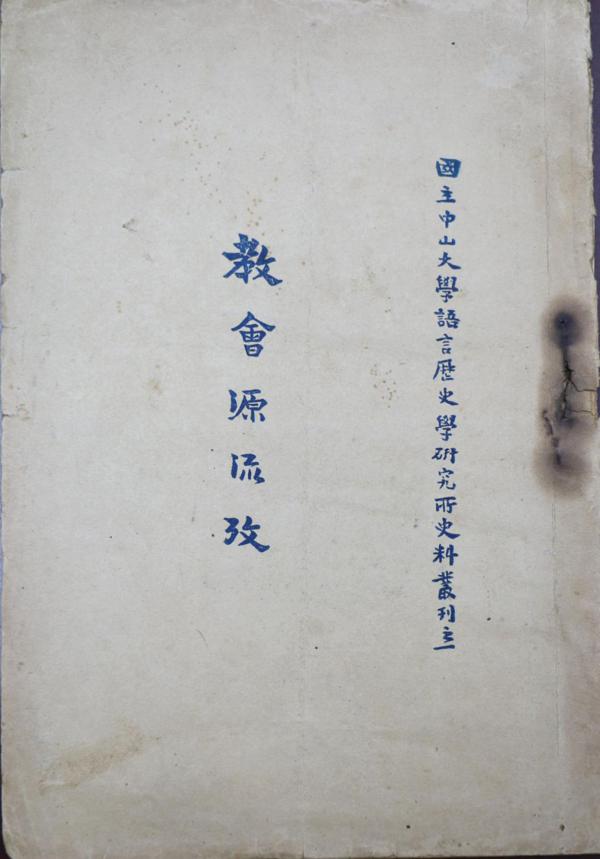 國立中山大學語言歷史學研究所史料叢刊之一
教會源流攷